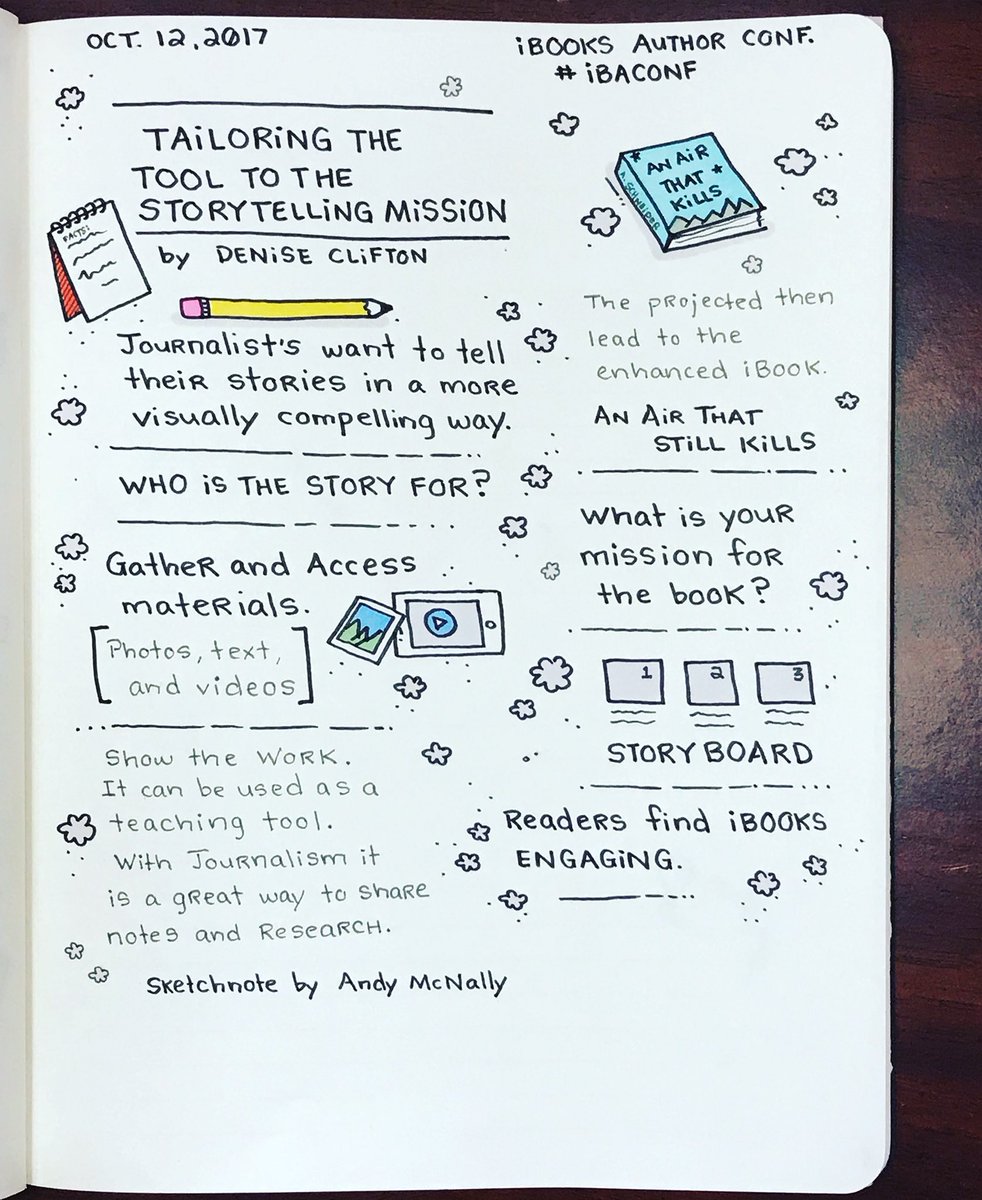 OCT. 12, 2017
iBOOKS AUTHOR CONF.
# iBACONF
TAiLORiNG THE
TOOL TO THE
STORYTELLiNG MiSSiON
by DENiSE CLiFTON
FACTS:
JOURNALiST'S want to tell
theiR stoRies in a moRe
visually compelling way.
WHO iS THE STORY FOR?
GatheR and Access
mateRials.
[Photos, text,
and videos]
Show the WORK.
It can be used as a
teaching tool.
With JouRnalism it
is a gReat way to shaRe
notes and ReseaRCH.
Sketchnote by Andy McNally
AN AiR
THAT
KiLLS
A. SCHNEiDER
The pRojected then
lead to the
enhanced iBook.
AN AiR THAT
STiLL KiLLS
What is youR
mission foR
the book?
1 2 3
STORYBOARD
ReadeRs find iBOOKS
ENGAGiNG.